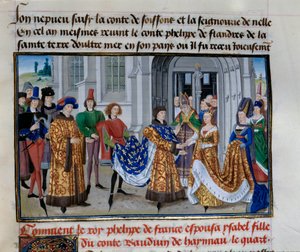 son nepueu saisy la conte de soissons et la seignourie de nelle
En cel an meismes reuint le conte phelipe de flandres de la
sainte terre doultre mer en son pays ou il fu receu ioieusemt
Comment le roy phelype de france espousa ysabel fille
du conte Bauduin de haynnau le quart